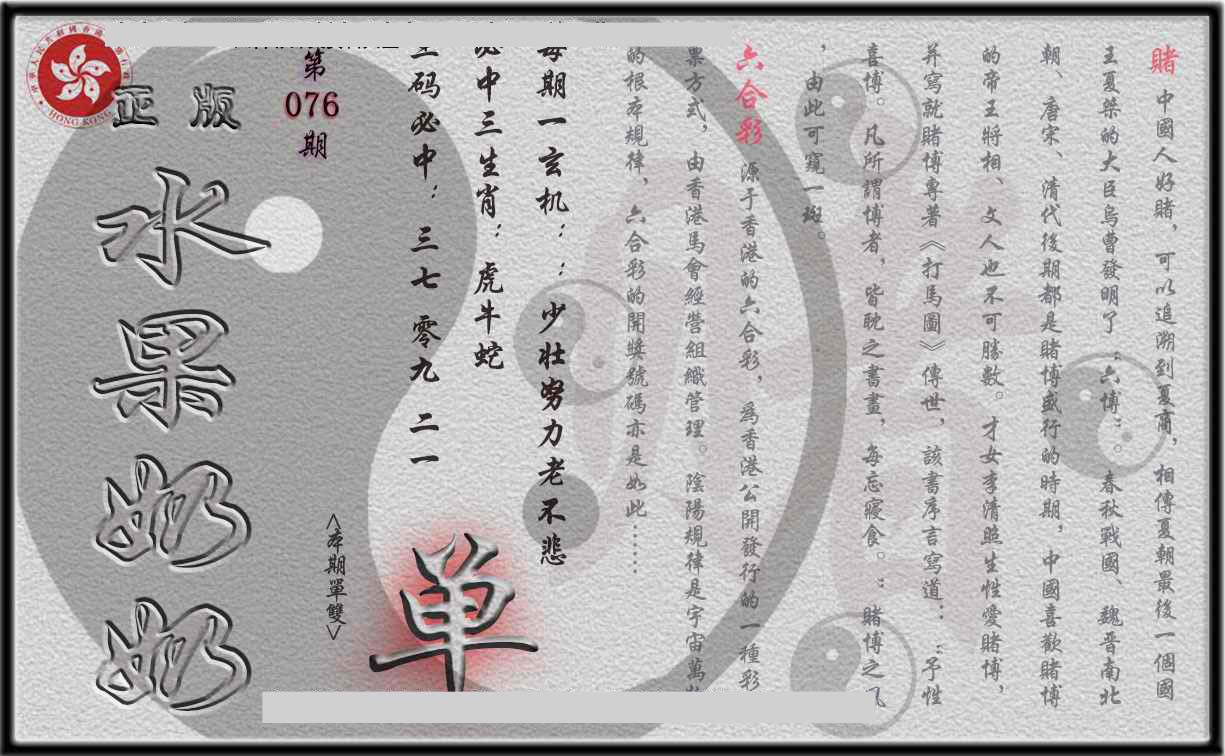 賭 中國人好賭，可以追溯到夏商，相傳夏朝最後一個國
王夏桀的大臣烏曹發明了“六博”。春秋戰國、魏晉南北
朝、唐宋、清代後期都是賭博盛行的時期，中國喜歡賭博
的帝王將相、文人也不可勝數。才女李清照生性愛賭博，
并寫就賭博專著《打馬圖》傳世，該書序言寫道：“予性
喜博。凡所謂博者，皆耽之書畫，每忘寢食。”賭博之風
，由此可窺一斑。
六合彩 源于香港的六合彩，為香港公開發行的一種彩
票方式，由香港馬會經營組織管理。陰陽規律是宇宙萬物
的根本規律，六合彩的開獎號碼亦是如此……
每期一玄机：：少壮努力老不悲
必中三生肖：虎牛蛇
码必中：三七 零九 二一
第
076
期
<本期單雙>
单
正版
水果奶奶
HONG KONG